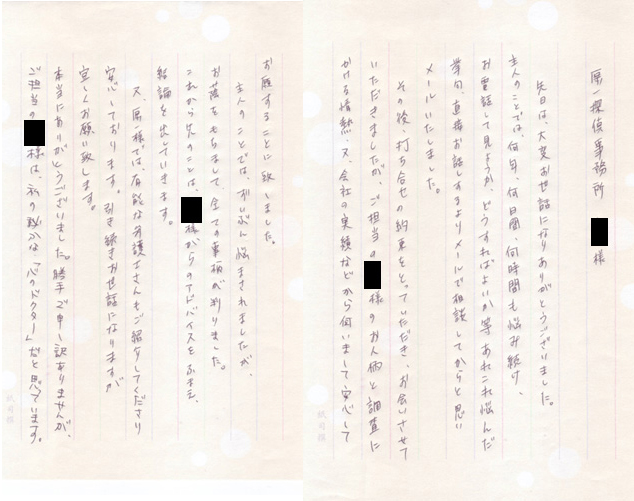 原一探偵事務所 様
先日は、大変お世話になりありがとうございました。
主人のことでは、何年、何日間、何時間も悩み続け、
お電話して見ようか、どうすればよいか等あれこれ悩んだ
挙句、直接お話しするよりメールで相談してからと思い
メールいたしました。
その後、打ち合せの約束をとっていただき、お会いさせて
いただきましたが、ご担当の 様のお人柄と調査に
かける情熱、又、会社の実績などから伺いまして安心して
お願することに致しました。
主人のことでは、ずいぶん悩まされましたが、
お蔭をもちまして、全ての事柄が判りました。
これから先のことは、 様からのアドバイスをふまえ、
結論を出していきます。
又、原一様では、有能な弁護士さんもご紹介してくださり
安心しております。引き続きお世話になりますが
宜しくお願い致します。
本当にありがとうございました。勝手で申し訳ありませんが、
ご担当の 様は、私の密かな「心のドクター」だと思っています。